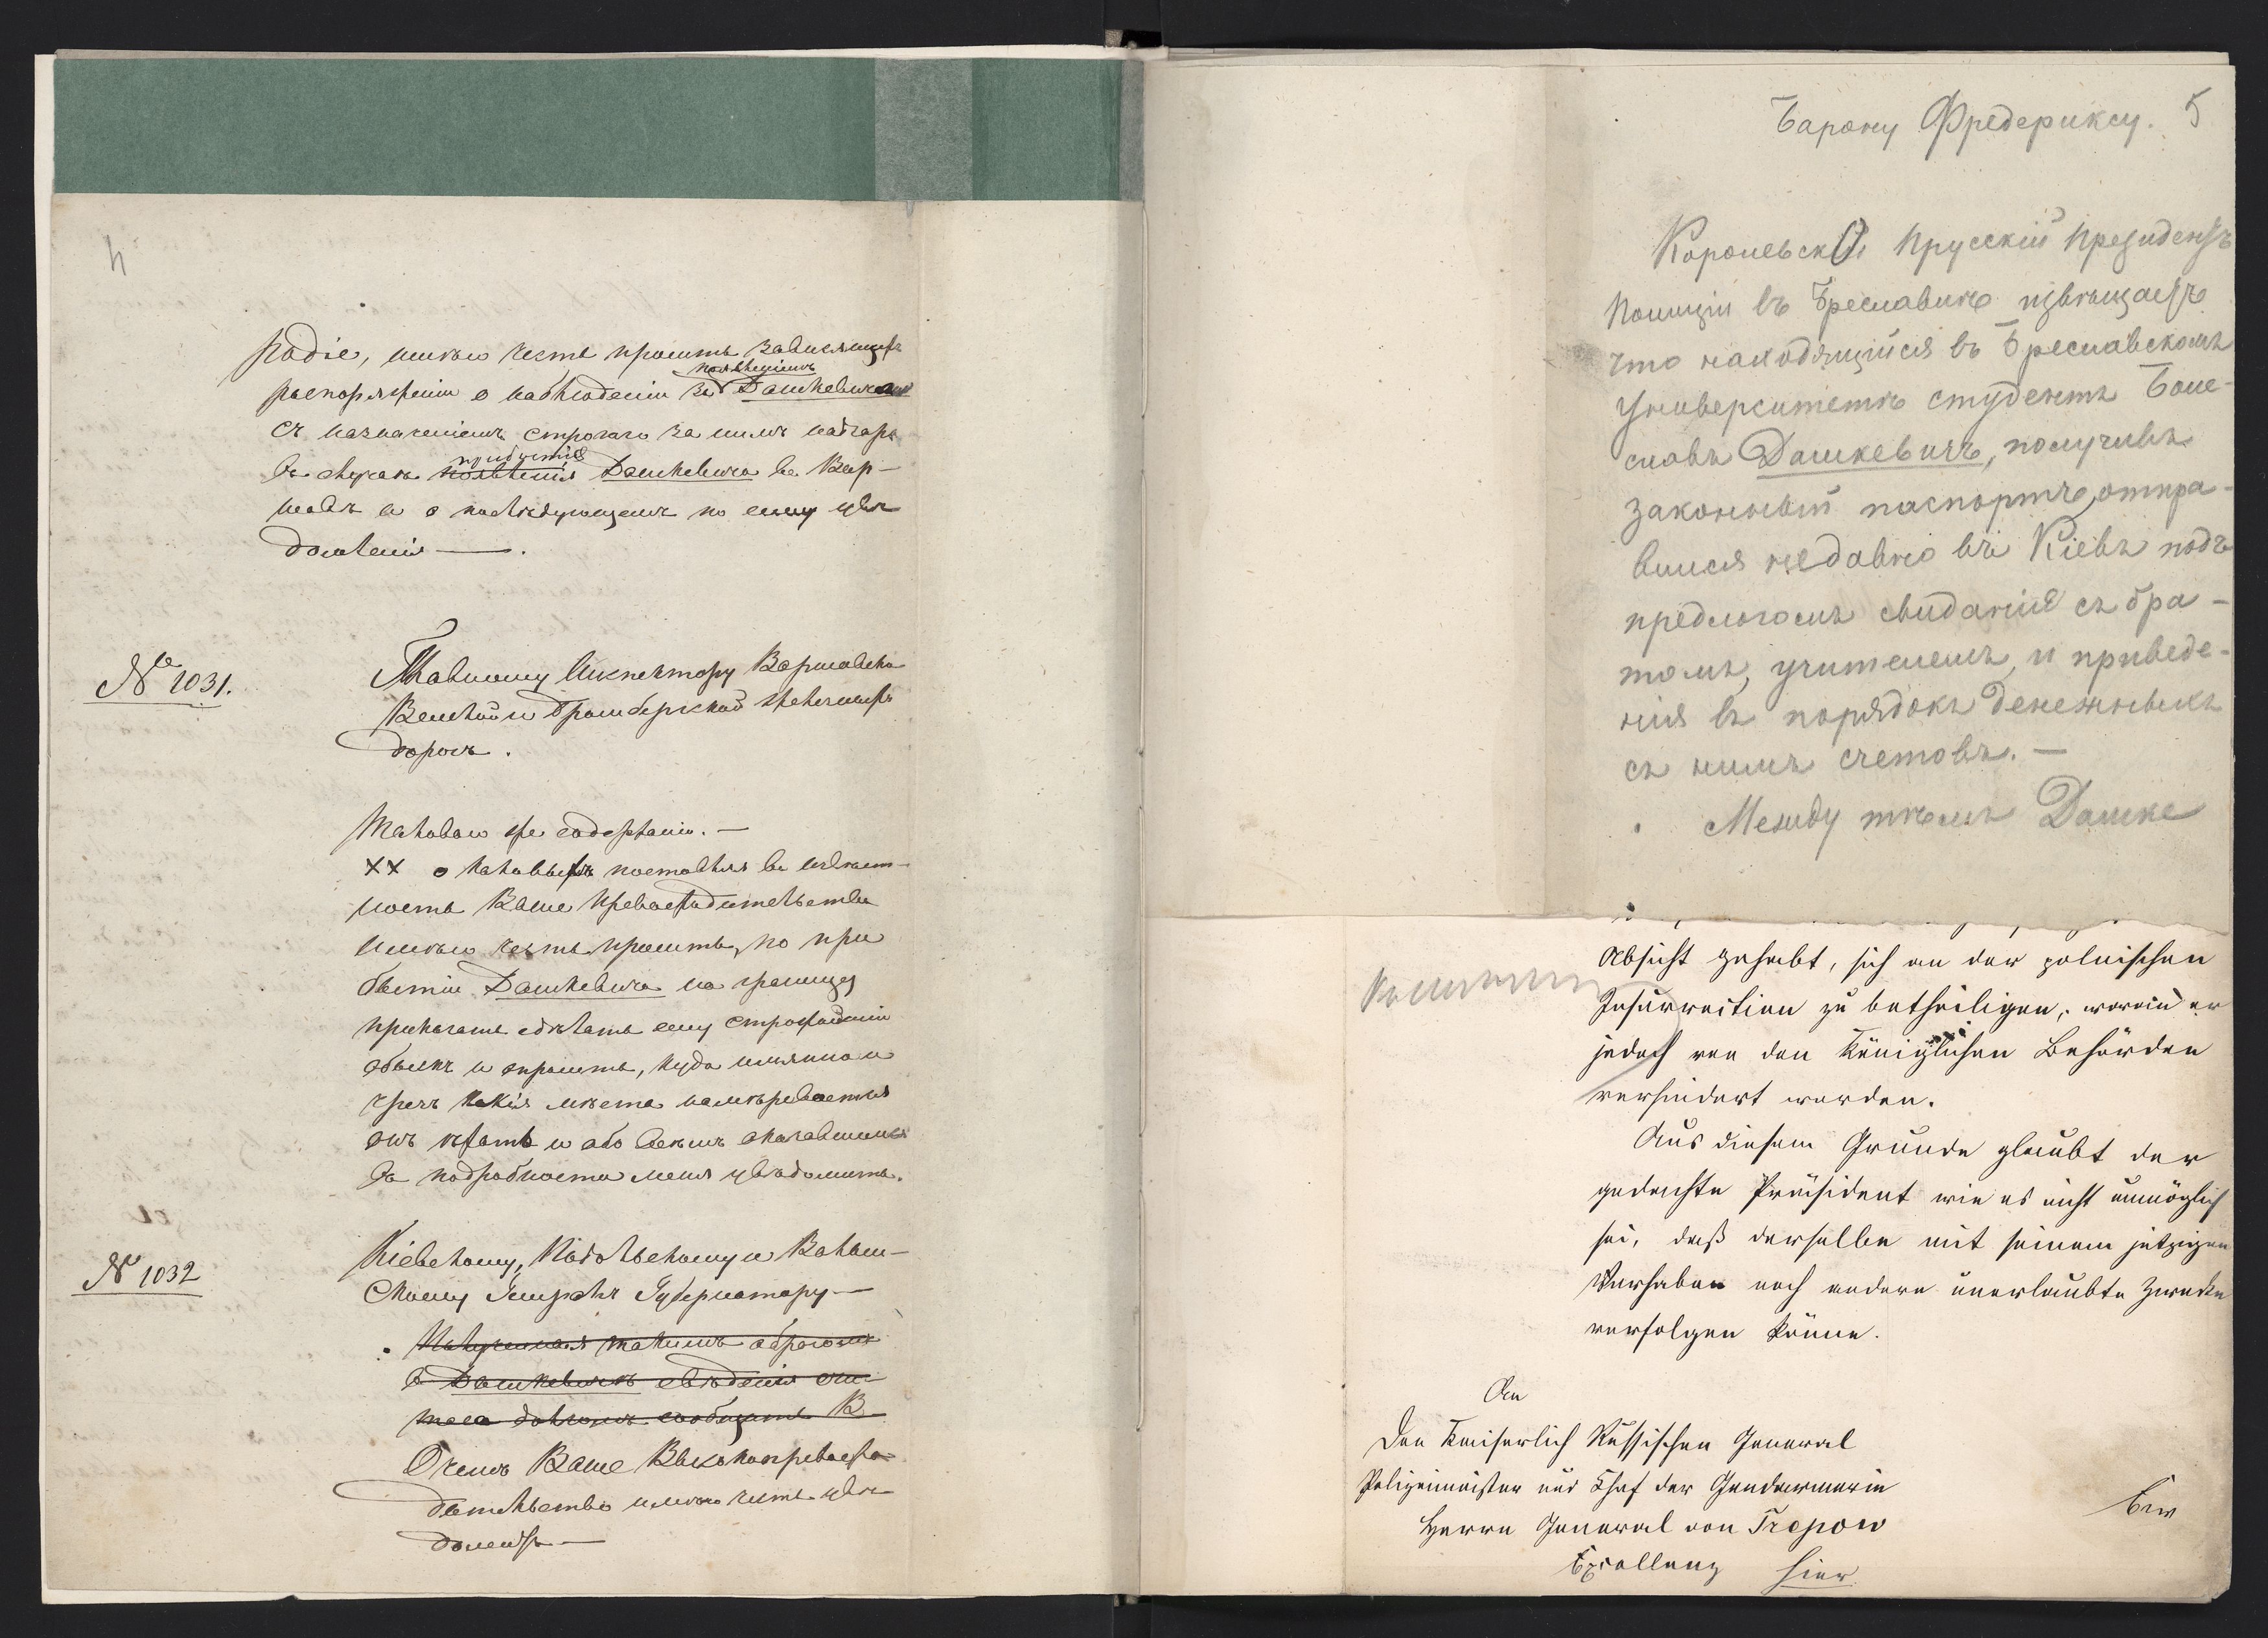 4
родіе, имѣю честь просить зависящихъ
появленіемъ
распоряженіи о наблюденіи за Дашкевича
съ назначеніемъ строгаго за нимъ надзора
прибытія
въ случаѣ появленія Дашкевича въ Вар-
шавѣ и о послѣдующемъ по сему увѣ
домленія — .
№ 1031.
Главному Инспектору Варшавско
Венской и Бромбергской желѣзныхъ
дорогъ .
Таковаго же содержанія. —
XX о каковыхъ поставляя въ извѣст-
ность Ваше Превосходительство
имѣю честь просить, по при
бытіи Дашкевича на границу
приказать сдѣлать ему строжайшій
обыскъ и спросить, куда именно и
чрезъ какія мѣста намѣревается
онъ ѣхать и обо всемъ оказавшемся
въ подробности меня увѣдомить.
№ 1032
Кіевскому, Подольскому и Волын-
скому Генералъ Губернатору —
Полученныя такимъ образомъ
о Дашкевичѣ свѣденія счи
таю долгомъ сообщить В
О чемъ Ваше Высокопревосхо-
дительство имѣю честь увѣ
домить —
Барону Фредериксу. 5
Королевско Прусскій Президентъ
Полиціи въ Бреславлѣ извѣщаетъ
что находящійся въ Бреславскомъ
Университетѣ студентъ Боле-
славъ Дашкевичъ, получивъ
законный паспортъ, отпра-
вился недавно въ Кіевъ подъ
предлогомъ свиданія съ бра-
томъ, учителемъ, и приведе-
нія въ порядокъ денежныхъ
съ нимъ счетовъ. —
Между тѣмъ Дашке
Absicht gehabt, sich an der polnischen
Insurrection zu betheiligen, woran er
jedoch von den Königlichen Behörden
verhindert worden.
Aus diesem Grunde glaubt der
gedachte Präsident wie es nicht unmöglich
sei, daß derselbe mit seinem jetzigen
Vorhaben noch andere unerlaubte Zwecke
verfolgen könne.
An
den Kaiserlich Russischen General
Polizeimeister und Chef der Gendarmerie
Herrn General von Trepow
Excellenz hier